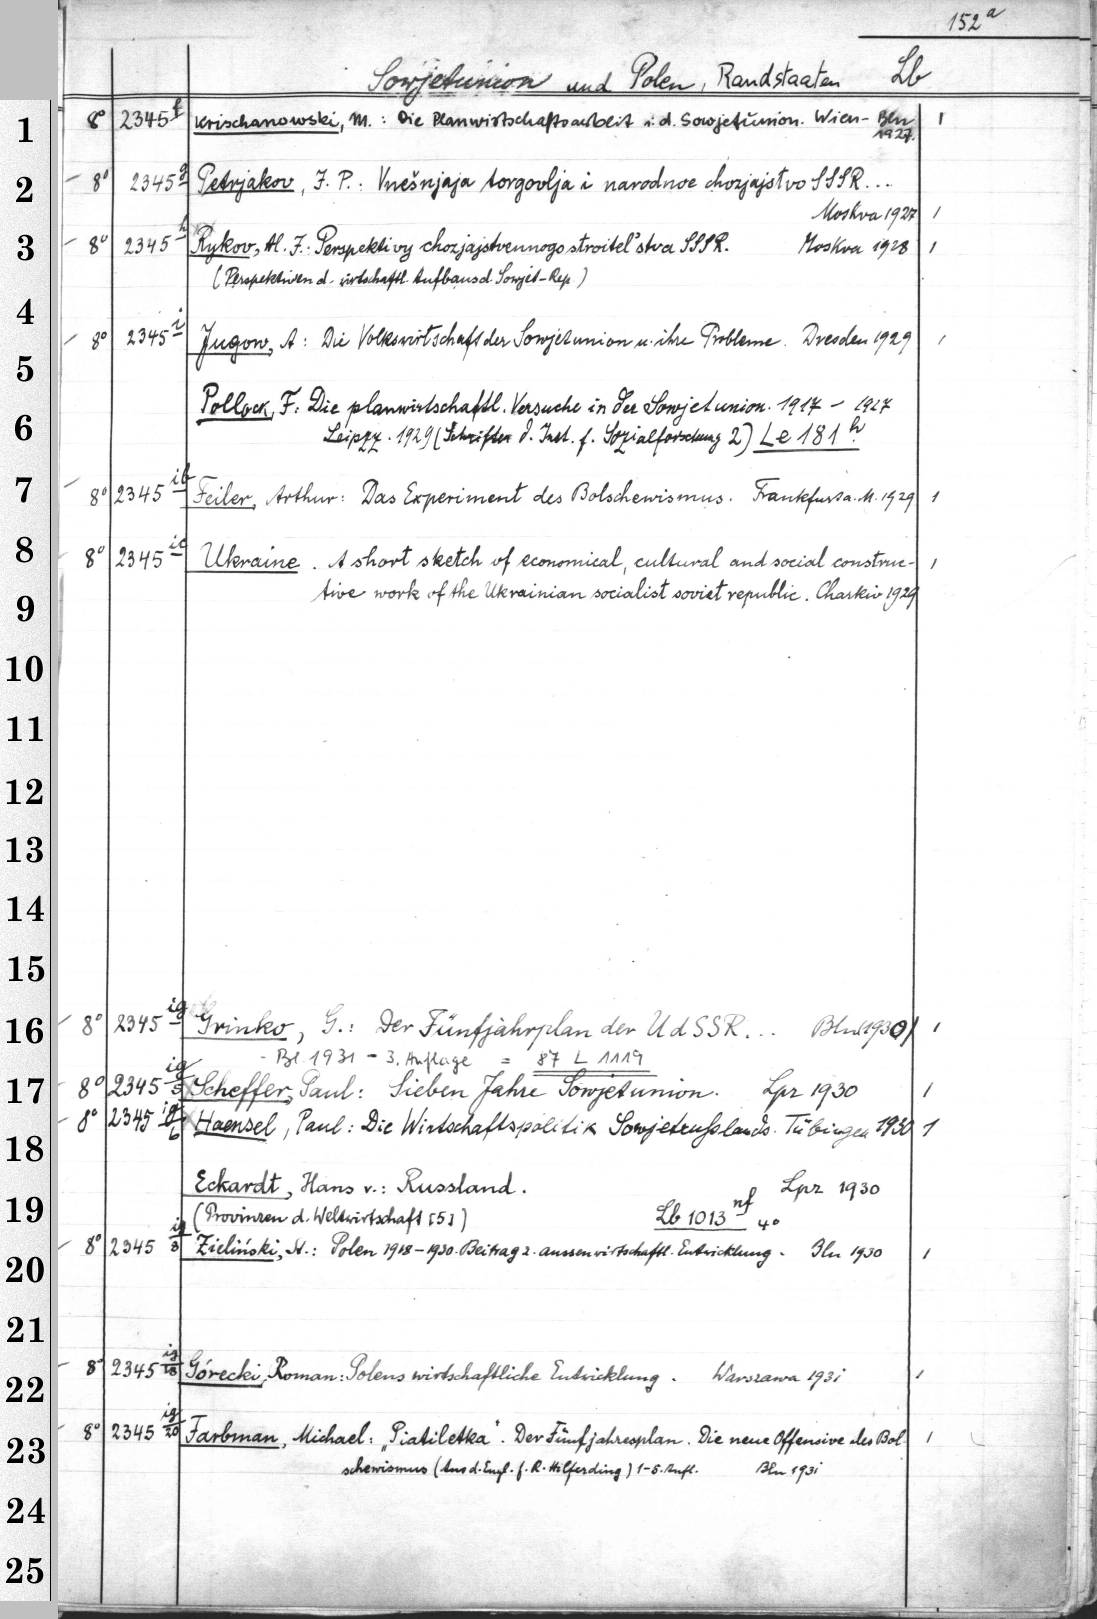 152a
Sowjetunion und Polen, Randstaaten Lb
1 8° 2345 f Krischanowski, M.: Die Planwirtschaftsarbeit i. d. Sowjetunion. Wien- Bln 1
1927.
2 8° 2345 g Petrjakov, J. P.: Vnešnjaja torgovlja i narodnoe chozjajstvo SSSR...
Moskva 1927 1
3 8° 2345 h Rykov, Al. J.: Perspektivy chozjajstvennogo stroitel'stva SSSR. Moskva 1928 1
(Perspektiven d. wirtschaftl. Aufbaus d. Sowjet-Rep)
4
8° 2345 i Jugow, A: Die Volkswirtschaft der Sowjetunion u. ihre Probleme. Dresden 1929 1
5
Pollock, F: Die planwirtschaftl. Versuche in der Sowjetunion. 1917 - 1927
6 Leipzg. 1929 (Schriften d. Inst. f. Sozialforschung 2) Le 181 h
7 8° 2345 ib Feiler, Arthur: Das Experiment des Bolschewismus. Frankfurt a. M. 1929 1
8 8° 2345 ic Ukraine. A short sketch of economical, cultural and social construc- 1
9 tive work of the Ukrainian socialist soviet republic. Charkiv 1929
10
11
12
13
14
15
16 8° 2345 ig Grinko, G.: Der Fünfjahrplan der UdSSR... Bln (1930) 1
- Bl. 1931 - 3. Auflage = 87 L 1119
17 8° 2345 ig/3 Scheffer, Paul: Sieben Jahre Sowjetunion. Lpz 1930 1
8° 2345 ig/6 Haensel, Paul: Die Wirtschaftspolitik Sowjetrusslands. Tübingen 1930 1
18
Eckardt, Hans v.: Russland. Lpz 1930
19 (Provinzen d. Weltwirtschaft [5]) Lb 1013 nf 4°
8° 2345 ig/8 Zieliński, H.: Polen 1918-1930. Beitrag z. aussenwirtschaftl. Entwicklung. Bln 1930 1
20
21
8° 2345 ig/18 Górecki, Roman: Polens wirtschaftliche Entwicklung. Warszawa 1931 1
22
8° 2345 ig/20 Farbman, Michael: „Piatiletka". Der Fünfjahresplan. Die neue Offensive des Bol- 1
23 schewismus (Aus d. Engl. f. R. Hilferding) 1-5. Aufl. Bln 1931
24
25